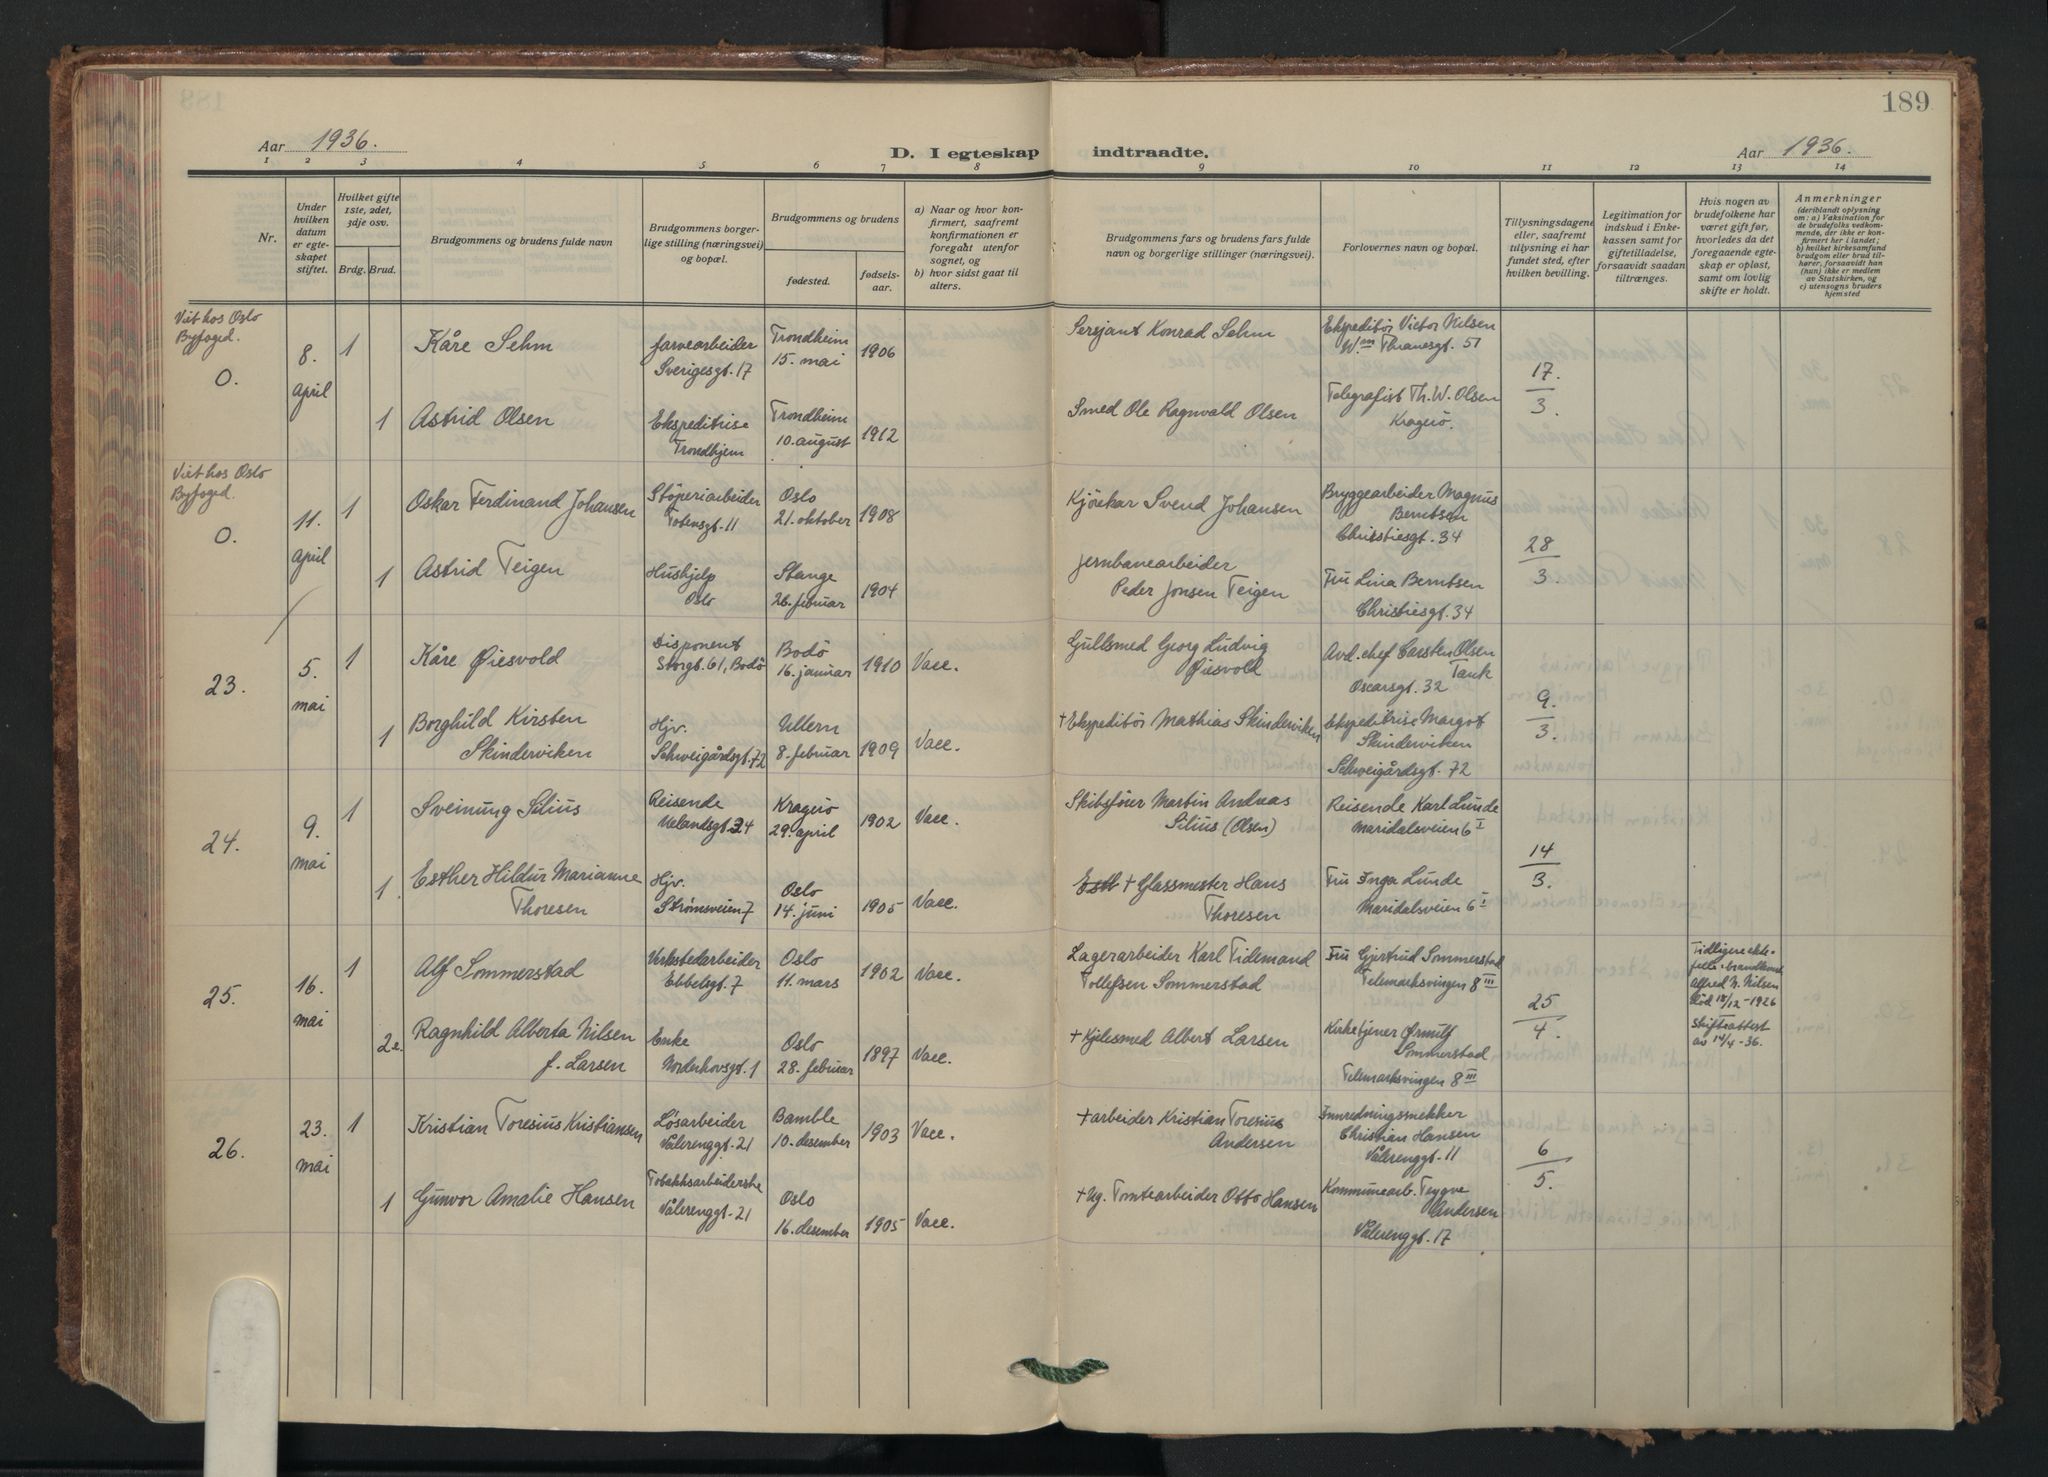 189
Aar 1936.
D. I egteskap indtraadte.
Aar 1936.
1 2 3 4 5 6 7 8 9 10 11 12 13 14
Nr.
Under hvilken datum er egteskapet stiftet.
Hvilket gifte 1ste, 2det, 3dje osv.
Brdg. Brud.
Brudgommens og brudens fulde navn
Brudgommens borgerlige stilling (næringsvei) og bopæl.
Brudgommens og brudens
fødested.
fødselsaar.
a) Naar og hvor konfirmert, saafremt konfirmationen er foregaat utenfor sognet, og
b) hvor sidst gaat til alters.
Brudgommens fars og brudens fars fulde navn og borgerlige stillinger (næringsvei).
Forlovernes navn og bopæl.
Tillysningsdagene eller, saafremt tillysning ei har fundet sted, efter hvilken bevilling.
Legitimation for indskud i Enkekassen samt for giftetilladelse, forsaavidt saadan tiltrænges.
Hvis nogen av brudefolkene har været gift før, hvorledes da det foregaaende egteskap er opløst, samt om lovlig skifte er holdt.
Anmerkninger
(deriblandt oplysning om: a) Vaksination for de brudefolks vedkommende, der ikke er konfirmert her i landet; b) hvilket kirkesamfund brudgom eller brud tilhører, forsaavidt han (hun) ikke er medlem av Statskirken, og c) utensogns bruders hjemsted
Viet hos Oslo
Byfoged.
0.
8. april
1 Kåre Sehm
farvearbeider
Sverigesgt. 17
Trondheim
15. mai 1906
Sersjant Konrad Sehm
Ekspeditør Victor Nilsen
Wm Thranesgt. 51
17./3.
1 Astrid Olsen
Ekspeditrise
Trondhjem
Trondheim
10. august 1912
Smed Ole Ragnvald Olsen
Telegrafist Th. W. Olsen
Kragerö.
Viet hos Oslo
Byfoged.
0.
11. april
1 Oskar Ferdinand Johansen
Støperiarbeider
Totensgt. 11
Oslo
21. oktober 1908
Kjörekar Svend Johansen
Bryggearbeider Magnus
Berntsen
Christiesgt. 34
28/3.
1 Astrid Teigen
Hushjelp
Oslo
Stange
26. februar 1904
Jernbanearbeider
Peder Jonsen Teigen
Fru Lina Berntsen
Christiesgt. 34
23.
5. mai
1 Kåre Øiesvold
Disponent
Storgt. 61, Bodö
Bodö
16. januar 1910 Vacc.
Gullsmed Georg Ludvig
Øiesvold
Avd. chef Carsten Olsen
Tank
Oscarsgt. 32
9./3.
1 Borghild Kirsten
Skinderviken
Hjv.
Schweigårdsgt. 72
Ullern
8. februar 1909 Vacc.
+ Ekspeditör Mathias Skinderviken
Ekspeditrise Margot
Skinderviken
Schweigårdsgt. 72
24.
9. mai
1 Sveinung Silius
Reisende
Uelandsgt. 24
Kragerö
29. april 1902 Vacc.
Skibsförer Martin Andreas
Silius (Olsen)
Reisende Karl Lunde
Maridalsveien 6 I
14/3.
1. Esther Hildur Marianne
Thoresen
Hjv.
Strømsveien 7
Oslo
14. juni 1905 Vacc.
+ Glassmester Hans
Thoresen
Fru Inga Lunde
Maridalsveien 6 I
25.
16. mai
1 Alf Sommerstad
Verkstedarbeider
Ebbelsgt. 7
Oslo
11. mars 1902 Vacc.
Lagerarbeider Karl Tidemand
Tollefsen Sommerstad
Fru Gjertrud Sommerstad
Telemarksvingen 8 III
25/4.
Tidligere ekte-
felle
Alfred N. Nilsen
död 15/12-1926
Skifteattest
av 14/4-36.
2e. Ragnhild Alberta Nilsen
f. Larsen
Enke
Norderhovsgt. 1
Oslo
28. februar 1897 Vacc.
+ Kjelesmed Albert Larsen
Kirketjener Ørnulf
Sommerstad
Telemarksvingen 8 III
26.
23. mai
1 Kristian Toresius Kristiansen
Løsarbeider
Vålerenggt. 21
Bamble
10. desember 1903 Vacc.
+ arbeider Kristian Toresius
Andersen
Innredningssnekker
Christian Hansen
Vålerenggt. 11
6/5.
1 Gunvor Amalie Hansen
Tobakksarbeiderske
Vålerenggt. 21
Oslo
16. desember 1905 Vacc.
+ Ug. Tomtearbeider Otto Hansen
Kommunearb. Trygve
Andersen
Vålerenggt. 17